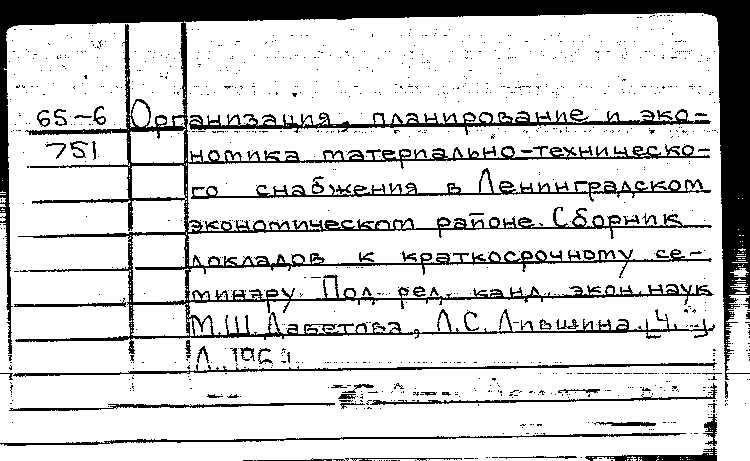 65-6 Организация, планирование и эко-
751 номика материально-техническо-
го снабжения в Ленинградском
экономическом районе. Сборник
докладов к краткосрочному се-
минару. Под ред. канд. экон. наук
М.Ш. Даветова, Л.С. Лившина. [Ч.
Л., 196